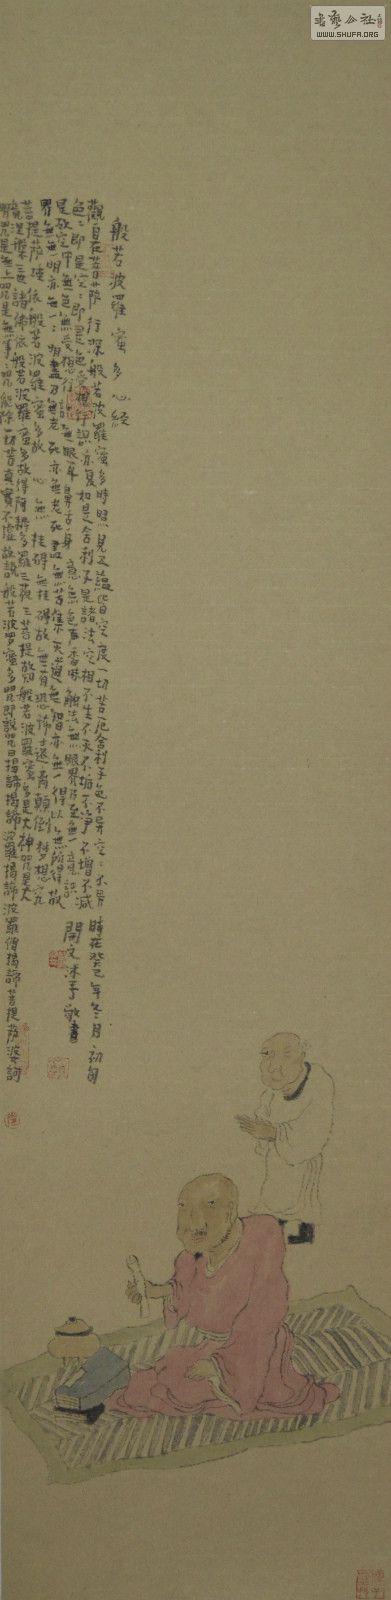 書藝公社
WWW.SHUFA.ORG
般若波羅蜜多心經
觀自在菩薩行深般若波羅蜜多時照見五蘊皆空度一切苦厄舍利子色不異空：不異
色：即是空：即是色受想行識亦復如是舍利子是諸法空相不生不灭不垢不淨不增不減
是故空中無色無受想行識無眼耳鼻舌身意無色声香味觸法無眼界乃至無意識
界無無明亦無：明盡乃至無老死亦無老死盡無苦集灭道無智亦無得以無所得故
菩提薩埵依般若波羅蜜多故心無挂碍無挂碍故無有恐怖遠离顛倒梦想究
竟涅槃三世諸佛依般若波羅蜜多故得阿耨多羅三藐三菩提故知般若波羅蜜多是大神咒是大
明咒是無上咒是無等：咒能除一切苦真實不虛故說般若波罗蜜多咒即說咒曰揭諦揭諦波羅揭諦波羅僧揭諦菩提薩婆訶
時在癸巳年冬月初旬
開文沐手敬書